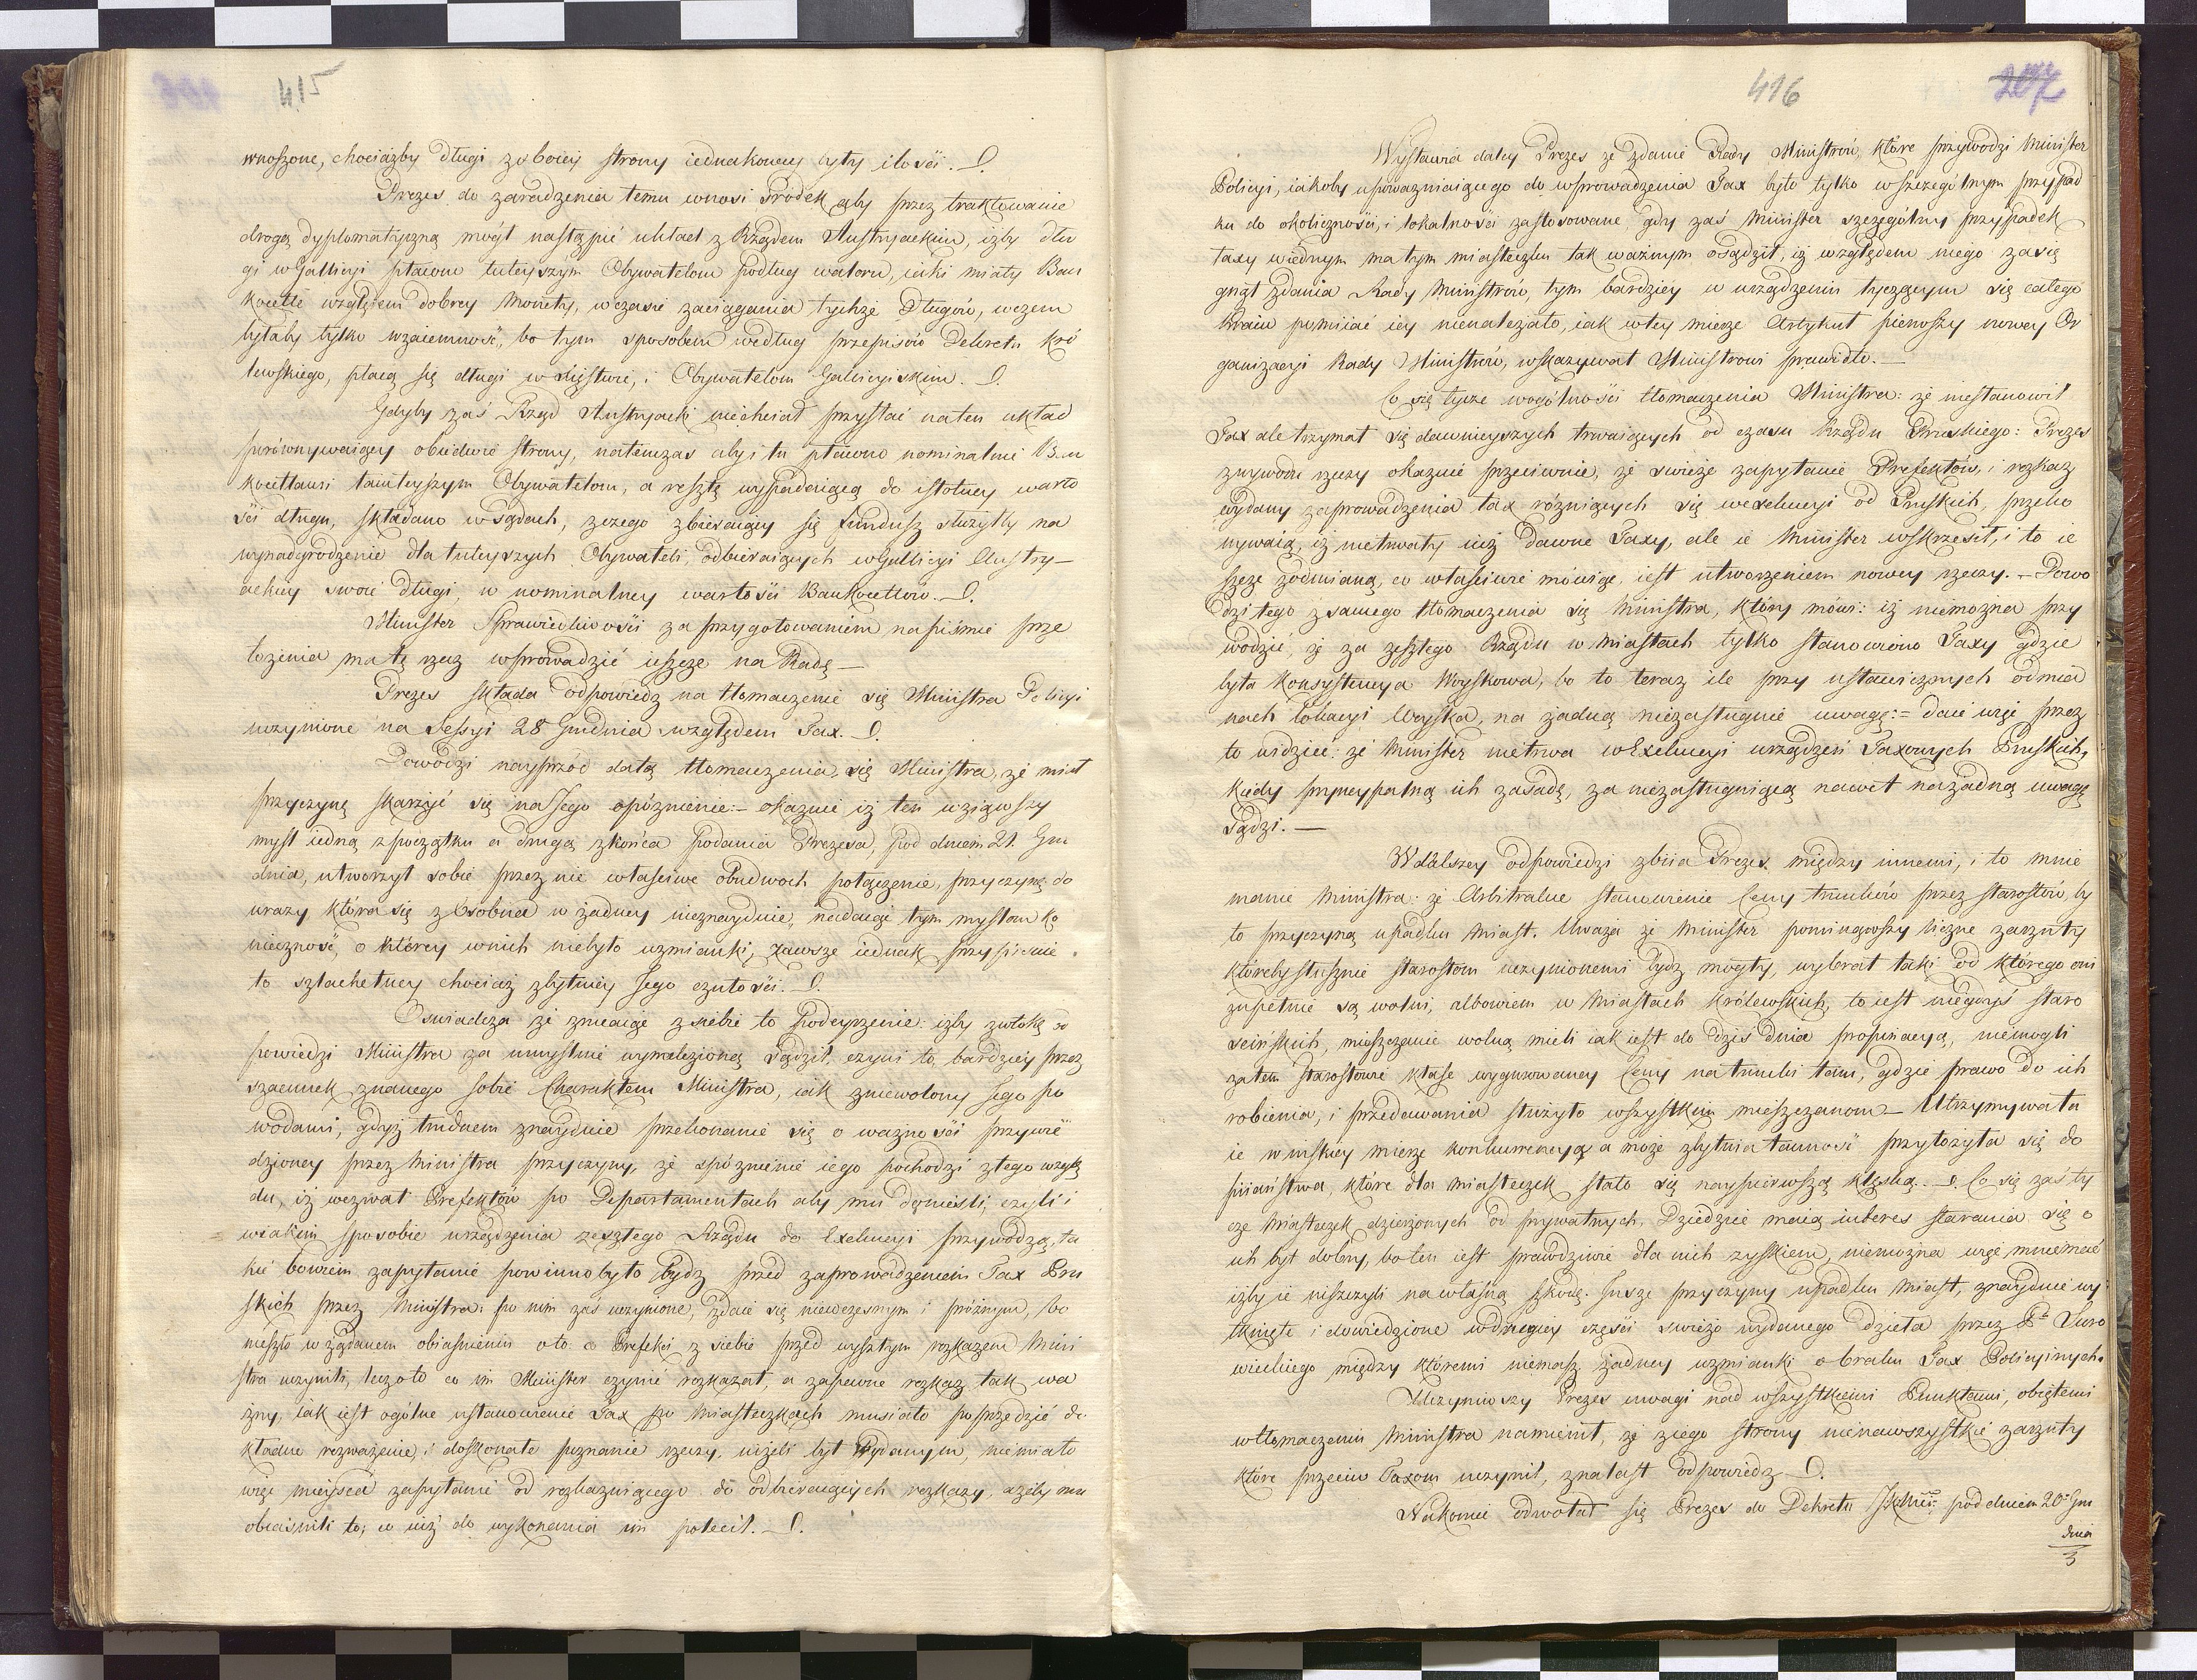 415
wnoszone, chociażby długi z oboiey strony iednakowey były ilości. —
Prezes do zaradzenia temu wnosi środek aby przez traktowanie
drogą dyplomatyczną mógł nastąpić układ z Rządem Austryackim, iżby dłu
gi w Gallicyi płacone tuteyszym Obywatelom podług waloru, iaki miały Ban
kocetle względem dobrey Monety, w czasie zaciągania tychże Długów, w czem
byłaby tylko wzaiemność, bo tym sposobem według przepisów Dekretu kró
lewskiego, płacą się długi w Xięstwie, i Obywatelom Galicyiskim.
Gdyby zaś Rząd Austryacki niechciał przystać na ten układ
porównywaiący obiedwie strony, natenczas aby i tu płacono nominalnie Ban
kocetlami tamteyszym Obywatelom, a resztę wypadaiącą do istotney warto
ści długu, składano w Sądach, z czego zbieraiący się fundusz służyłby na
wynadgrodzenie dla tuteyszych Obywateli, odbieraiących w Gallicyi Austry—
ackiey swoie Długi, w nominalney wartości Bankocetlow.
Minister Sprawiedliwości za przygotowaniem na piśmie prze
łożenia ma tę rzecz wprowadzić ieszcze na Radę —
Prezes składa odpowiedz na tłomaczenie się Ministra Policyi
uczynione na Sessyi 28 Grudnia względem Tax.
Dowodzi nayprzód datą tłomaczenia się Ministra, że miał
przyczynę skarżyć się na Jego opóźnienie: — okazuie iż ten wziąwszy
myśl iedną z początku a drugą z końca Podania Prezesa, pod dniem 21. Gru
dnia, utworzył sobie przez nie właściwe obudwóch połączenie, przyczynę do
urazy która się z osobna w żadney nieznayduie, nadaiąc tym myślom ko
nieczność, o którey w nich niebyło wzmianki, zawsze iednak przypisuie
to szlachetney chociaż zbytniey Jego czułości.
Oswiadcza że zmeaiąc z siebie to Podeyrzenie: iżby zwłokę od
powiedzi Ministra za umyślnie wynalezioną Sądził, czyni to bardziey przez
szacunek znanego sobie Charakteru Ministra, iak zniewolony Jego po
wodami, gdyż trudnem znayduie przekonanie się o ważności przywie
dzioney przez Ministra przyczyny, że spóznienie iego pochodzi z tego wzglę
du, iż wezwał Prefektów po Departamentach aby mu donieśli, czyli i
w iakim sposobie urządzenia zeszłego Rządu do Exekucyi przywodzą, ta
kie bowiem zapytanie powinno było bydz przed zaprowadzeniem Tax Pru
skich przez Ministra: po nim zaś uczynione, zdaie się niewczesnym i próżnym, bo
nieszło w żądanem obiasnieniu o to co Prefekci z siebie przed wyszłym rozkazem Mini
stra uczynili, lecz o to co im Minister czynić rozkazał, a zapewne rozkaz tak wa
żny, iak iest ogólne ustanowienie Tax po Miasteczkach musiało poprzedzić do
kładne rozważenie, i doskonałe poznanie rzeczy, niżeli był wydanym, nie miało
więc mieysca zapytanie od rozkazuiącego do odbieraiących rozkazy, ażeby mu
obiaśnili to, co iuż do wykonania im polecił.
416
207
Wystawia daley Prezes że zdanie Rady Ministrów, które przywodzi Minister
Policyi, iakoby upoważniaiącego do wprowadzenia Tax było tylko w szczególnym przypad
ku do okoliczności, i lokalności zastosowane, gdy zaś Minister szczególny przypadek
taxy w iednym małym miasteczku tak ważnym osądził, iż względem niego zasię
gnął zdania Rady Ministrów, tym bardziey w urządzeniu tyczącym się całego
kraiu pomiiać iey nienależało, iak w tey mierze Artykuł pierwszy nowey Or
ganizacyi Rady Ministrów, wskazywał Ministrowi prawidło. —
Co się tycze wogólności tłomaczenia Ministra: że niestanowił
Tax ale trzymał się dawnieyszych trwaiących od czasu Rządu Pruskiego: Prezes
z wywodu rzeczy okazuie przeciwnie, że świeże zapytanie Prefektów, i rozkaz
wydany zaprowadzenia tax różniących się w exekucyi od Pruskich, przeko
nywaią, iż nietrwały iuż Dawne Taxy, ale ie Minister wskrzesił, i to ie
szcze z odmianą, co właściwie mówiąc, iest utworzeniem nowey rzeczy. — Dowo
dzi tego z samego tłomaczenia się Ministra, który mówi: iż niemożna przy
wodzić, że za zeszłego Rządu w Miastach tylko stanowiono Taxy gdzie
była Konsystencya Woyskowa, bo to teraz ile przy ustawicznych odmia
nach lokacyi Woyska, na żadną niezasługuie uwagę: = daie więc przez
to widzieć: że Minister nietrwa w Exekucyi urządzeń Taxowych Pruskich,
kiedy pryncypalną ich zasadę, za niezasługuiącą nawet na żadną uwagę
Sądzi. —
W dalszey odpowiedzi zbiia Prezes między innemi, i to mnie
manie Ministra: że Arbitralne stanowienie Ceny trunków przez starostów, by
ło przyczyną upadku Miast. Uważa że Minister pominąwszy liczne zarzuty
któreby słusznie starostom uczynionemi bydz mogły, wybrał taki od którego oni
zupełnie są wolni, albowiem w Miastach królewskich, to iest niegdyś staro
ścińskich, mieszczanie wolną mieli iak iest do dziś dnia propinacyą, niemogli
zatem Starostowie kłaść wygurowaney Ceny na trunki tam, gdzie prawo do ich
robienia, i przedawania służyło wszystkim mieszczanom — Utrzymywała
ie w niskiey mierze konkurrencya a może zbytnia taniość przyłożyła się do
piiaństwa, które dla miasteczek stało się naypierwszą klęską. — Co się zaś ty
cze Miasteczek dzierżonych od prywatnych, Dziedzice maią interes starania się o
ich byt dobry, bo ten iest prawdziwie dla nich zyskiem, niemożna więc mniemać
iżby ie niszczyli na własną szkodę. Insze przyczyny upadku Miast, znayduie wy
tknięte i dowiedzione w drugiey części świeżo wydanego dzieła przez Pa Suro
wieckiego między któremi niemasz żadney wzmianki o braku Tax Policyinych.
Uczyniwszy Prezes uwagi nad wszystkiemi Punktami, obiętemi
w tłomaczeniu Ministra namienił, że z iego strony nienawszystkie zarzuty
które przeciw Taxom uczynił, znalazł odpowiedz
Nakoniec odwołał się Prezes do Dekretu JKMci pod dniem 20 Gru
dnia
3